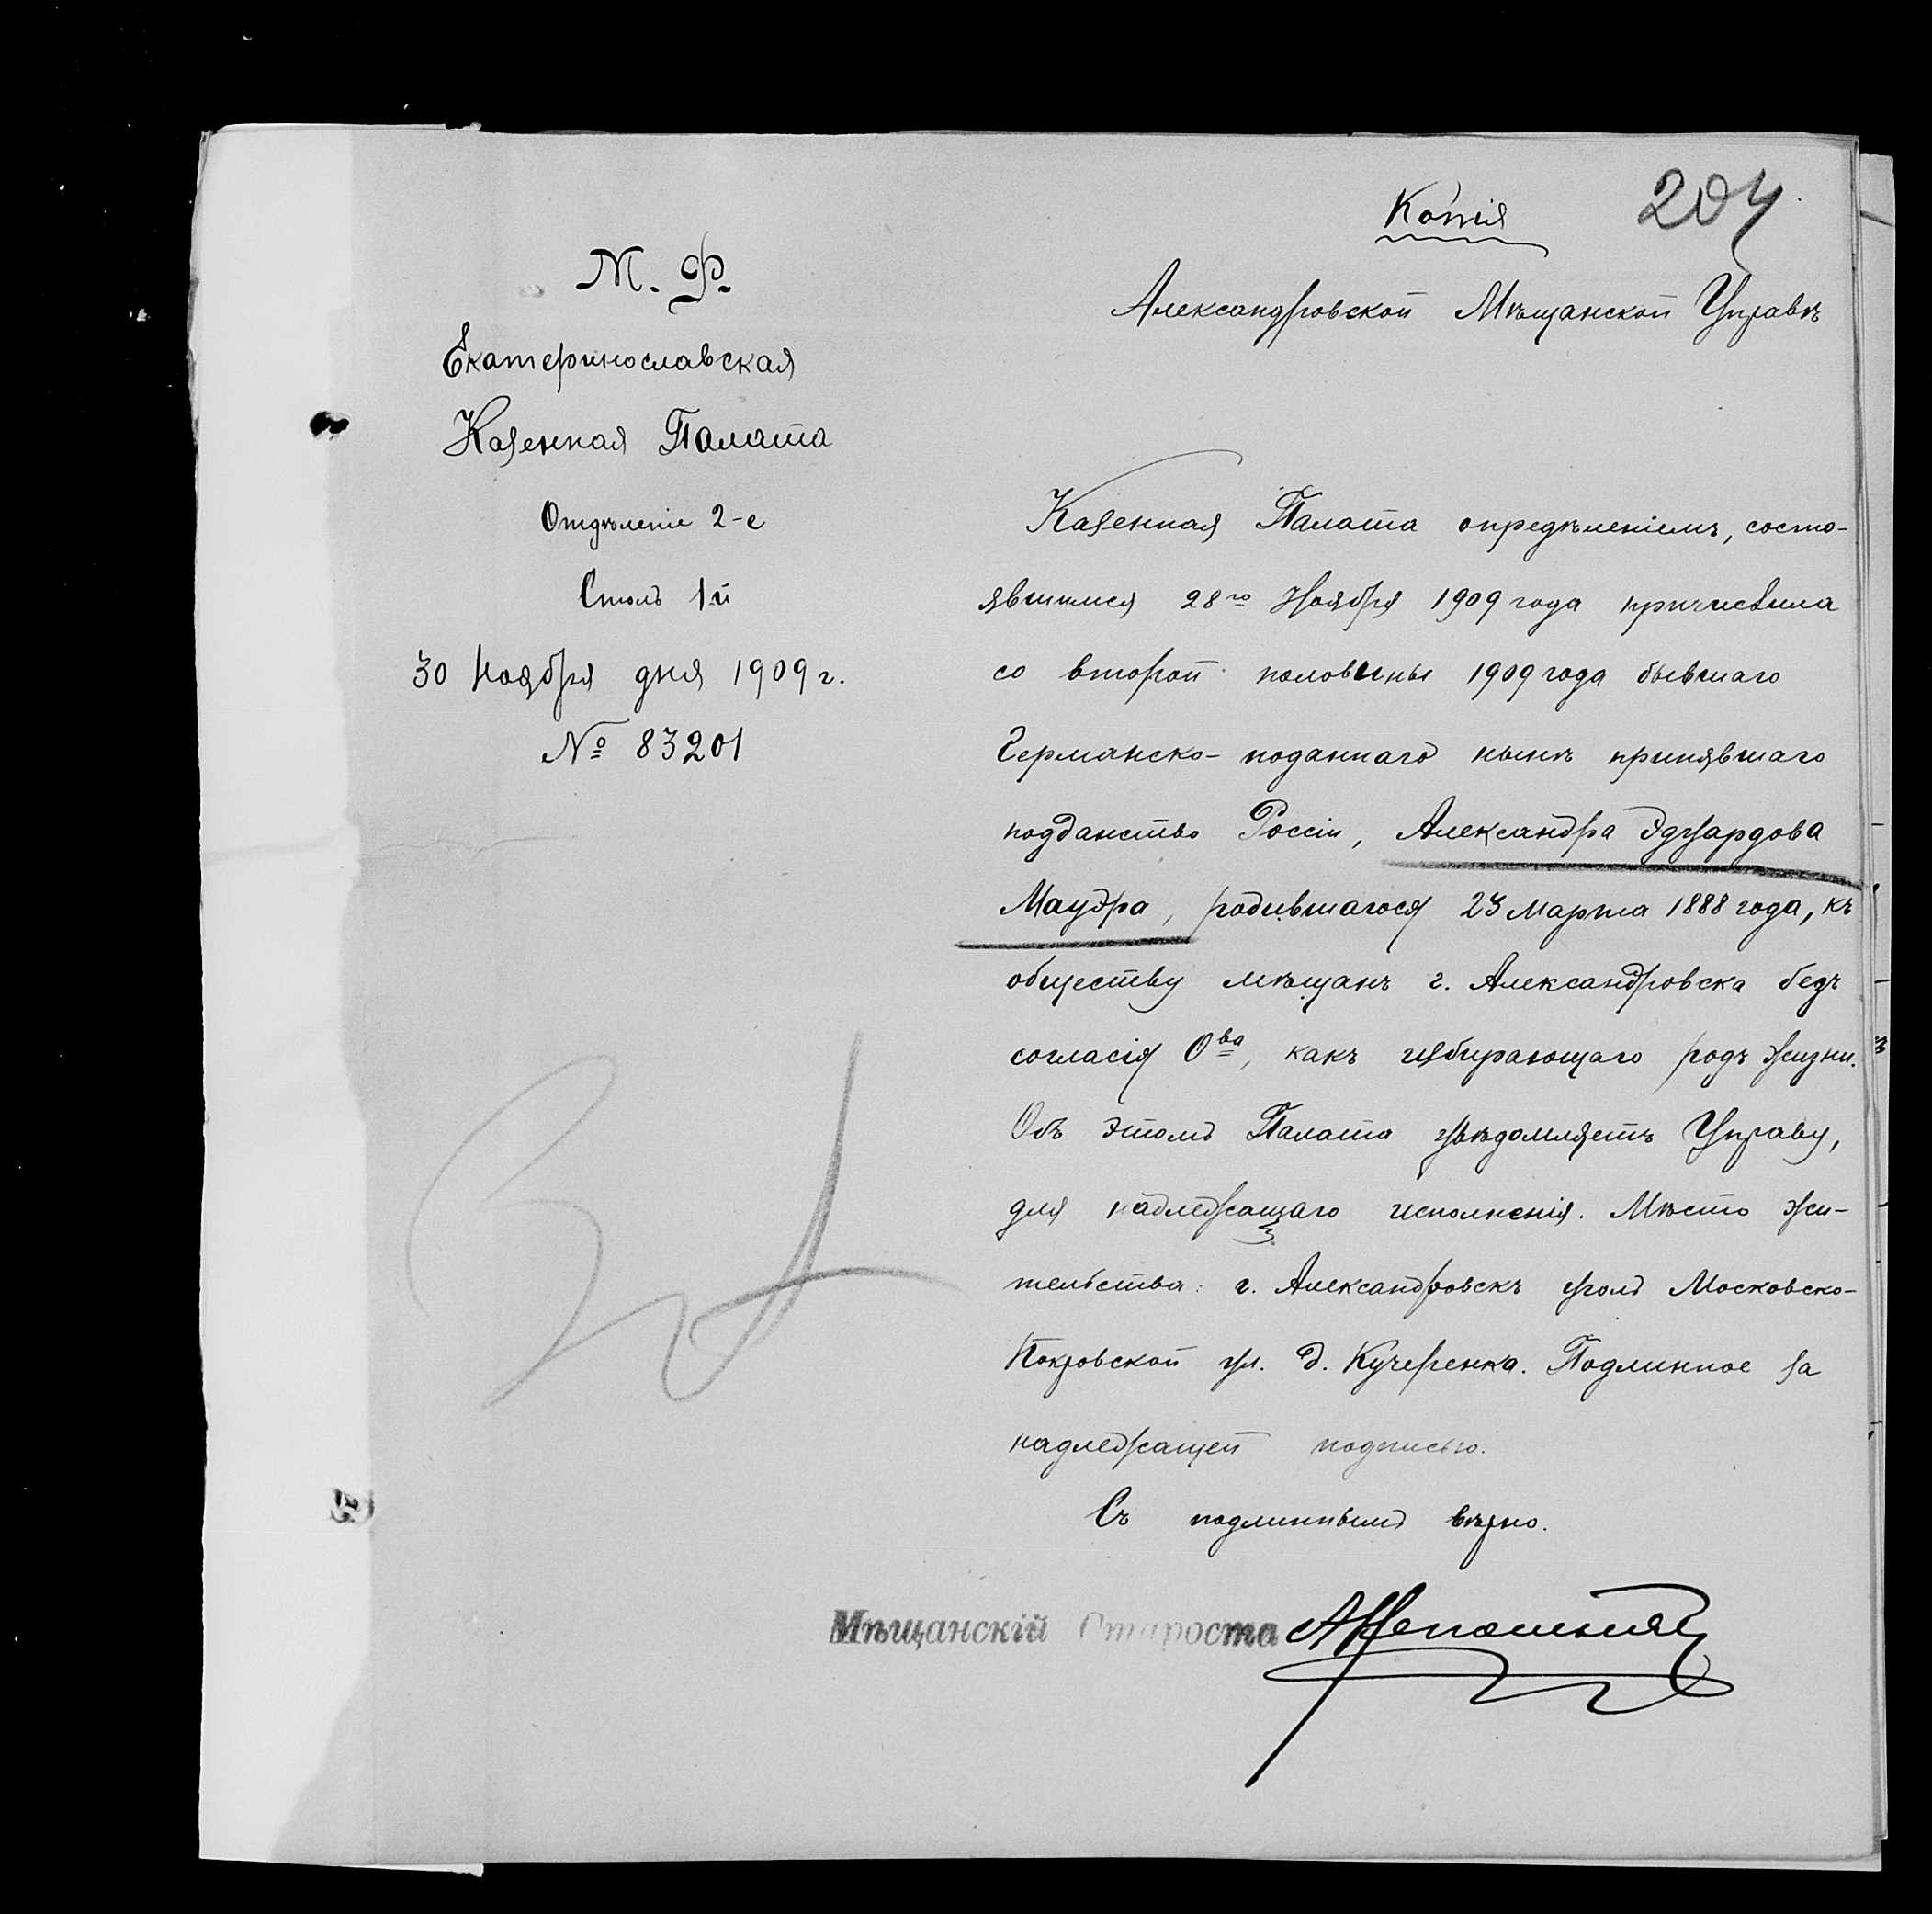 Копія
204
М. Ф.
Екатеринославская
Казенная Палата
Отдѣленіе 2-е
Столъ 1й
30 Ноября дня 1909 г.
№ 83201
Александровской Мѣщанской Управѣ
Казенная Палата опредѣленіемъ, состо-
явшимся 28го Ноября 1909 года причислила
со второй половины 1909 года бывшаго
Германско-поданнаго нынѣ принявшаго
подданство Россіи, Александра Эдуардова
Мауэра, родившагося 23 Марта 1888 года, къ
обществу мѣщанъ г. Александровска безъ
согласія О-ва, какъ избирающаго родъ жизни.
Объ этомъ Палата увѣдомляетъ Управу,
для надлежащаго исполненія. Мѣсто жи-
тельства: г. Александровскъ уголъ Московско-
Покровской ул. д. Кучеренка. Подлинное за
надлежащей подписью.
Съ подлиннымъ вѣрно.
Мѣщанскій Староста